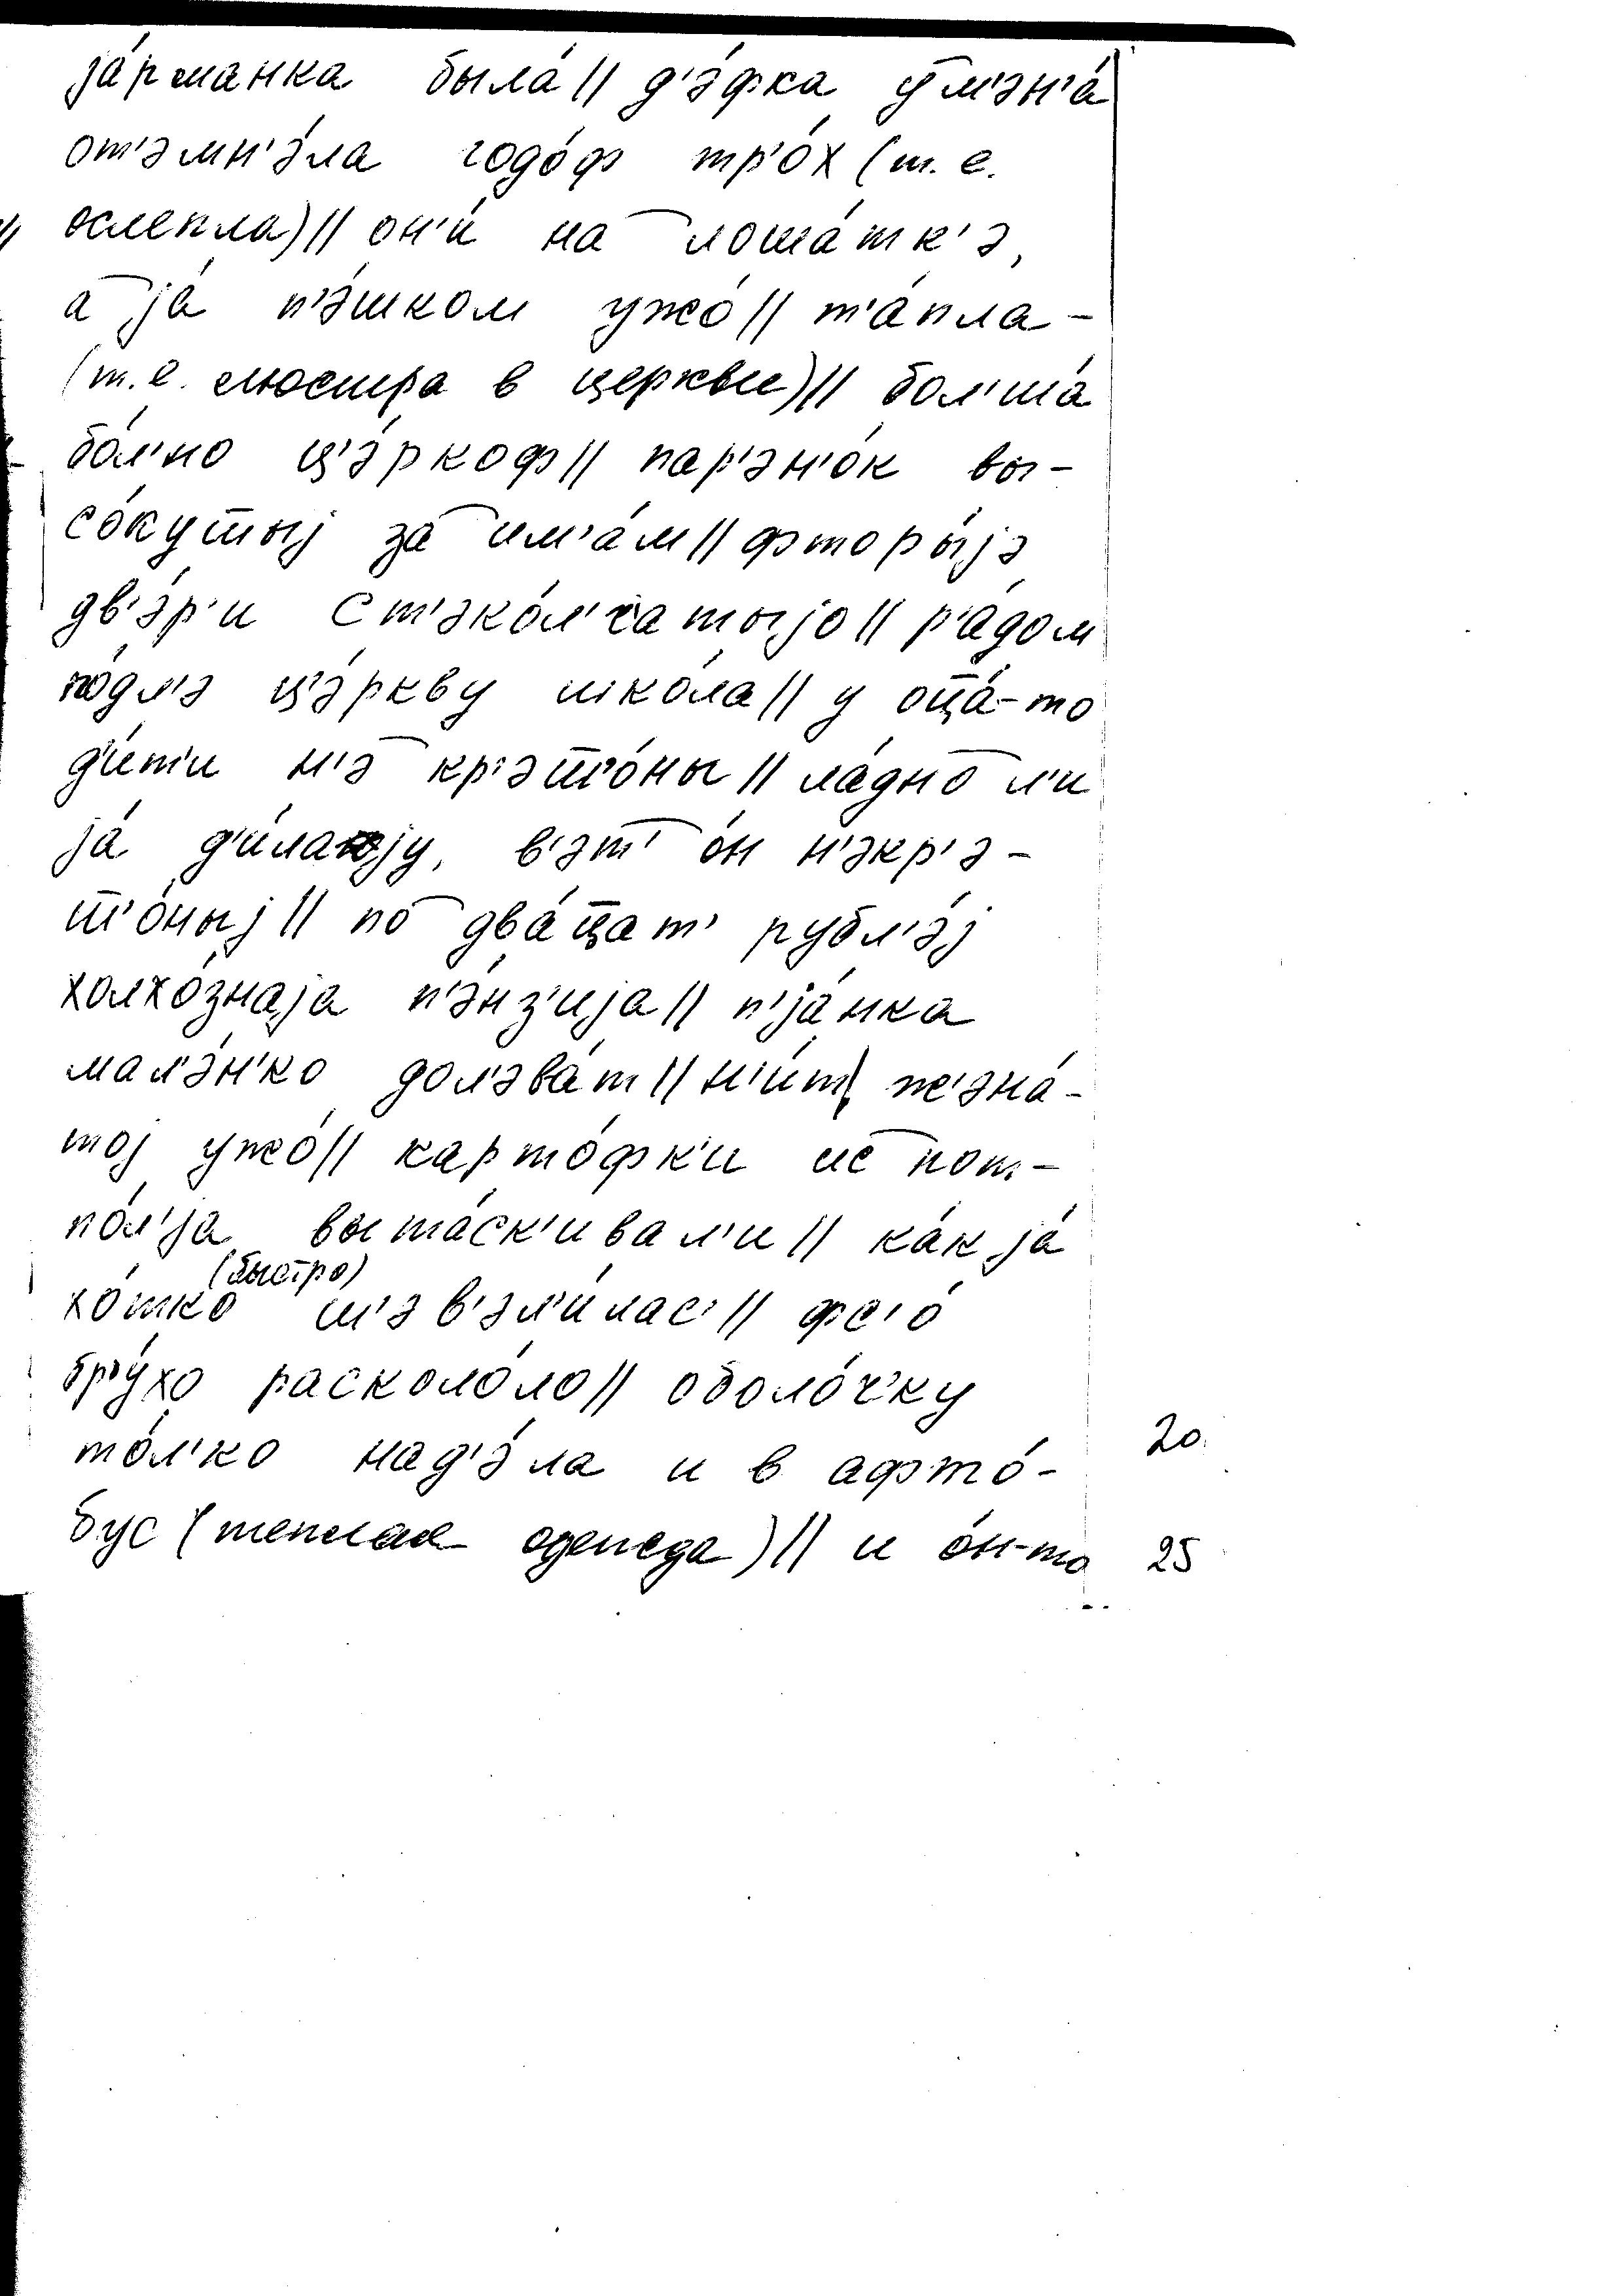 jа́рманка была́ // д'э́фка у͡м'эн'а́
от'эмн'э́ла годо́ф тр'о́х (т.е.
ослепла) // он'и́ на͡ лоша́тк'э,
а͡ jа́ п'э́шком ужо́ // т'а́пла –
(т.е. люстра в церкви) // бол'ша́
бо́л'но ц'э́ркоф // пар'эн'о́к вы-
со́кушыj за͡ им'а́м // фторы́jэ
дв'э́р'и ст'эко́л'чатыjо // р'а́дом
по́дл'э ц'э́ркву шко́ла // у оц̄а́-то
д'и́т'и н'э͡ кр'эш̄'о́ны // ла́дно͡ л'и
jа́ д'и́лаjу, в'эт'͡ о́н н'экр'э-
ш̄'о́ныj // по͡ два́ц̄ат' рубл'э́j
холхо́знаjа п'э́нз'иjа // п'jа́нка
мал'э́н'ко дол'эва́т // н'и́т ж'эна́-
тоj ужо́ // карто́фк'и ис͡ пот-
по́л'jа выта́ск'ивал'и // ка́к jа́
(быстро)
хо́тко ш'эв'эл'и́лас' // фс'о́
бр'у́хо расколо́ло // оболо́ч'ку
то́л'ко над'э́ла и в афто́-
20
бус (теплая одежда) // и о́н-то
25